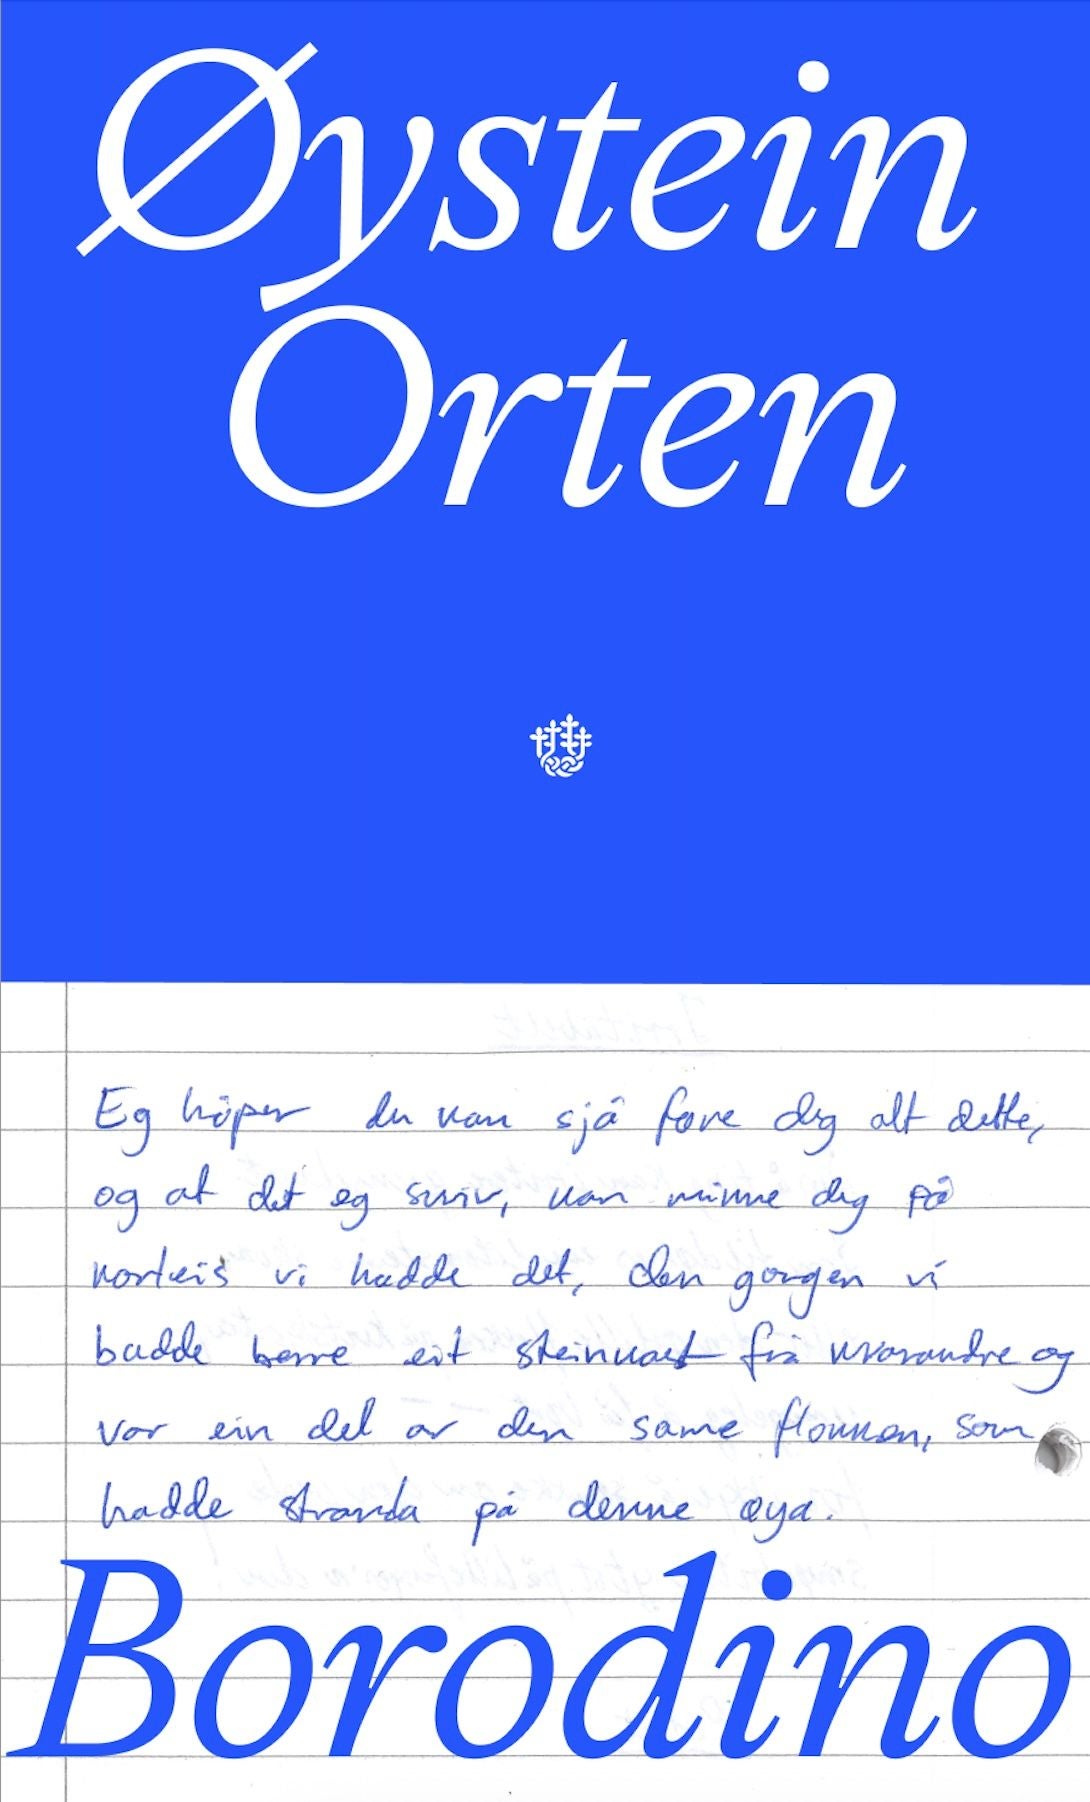 Øystein
Orten
Eg håper du kan sjå føre deg alt dette,
og at det eg skriv, kan minne deg på
korleis vi hadde det, den gongen vi
budde berre eit steinkast frå kvarandre og
var ein del av den same flokken, som
hadde stranda på denne øya.
Borodino